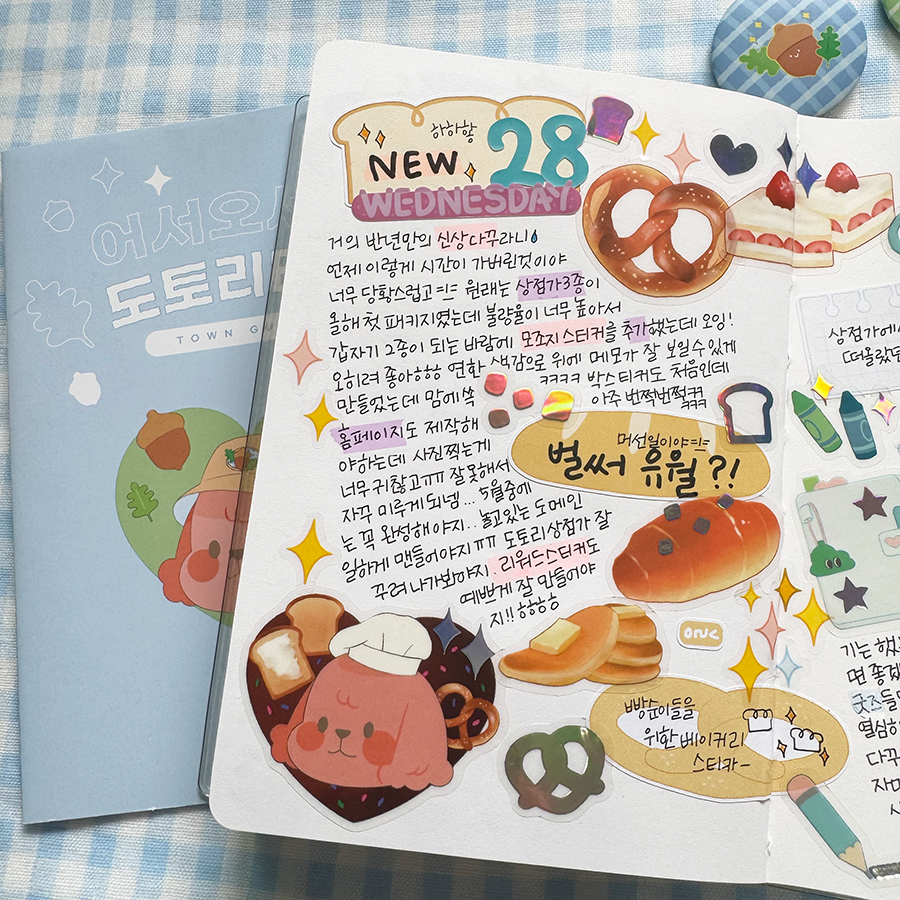 어서오세
도토리
TOWN GU
하하핳
NEW 28
WEDNESDAY
거의 반년만의 신상다꾸라니
언제 이렇게 시간이 가버린것이야
너무 당황스럽고ㅋㅋ 원래는 상점가3종이
올해 첫 패키지였는데 불량율이 너무 높아서
갑자기 2종이 되는 바람에 모조지스티커를 추가했는데 오잉!
오히려 좋아ㅎㅎㅎ 연한 색감으로 위에 메모가 잘 보일수있게
만들었는데 맘에 쏙
ㅋㅋㅋㅋ 박스티커도 처음인데
아주 번쩍번쩍ㅋㅋ
홈페이지도 제작해
야하는데 사진찍는게
너무 귀찮고ㅠㅠ 잘못해서
자꾸 미루게 되넴... 5월중에
는 꼭 완성해야지.. 놀고있는 도메인
일하게 만들어야지ㅠㅠ 도토리상점가 잘
꾸려나가봐야지. 리워드스티커도
예쁘게 잘 만들어야
지!! ㅎㅎㅎㅎ
머선일이야ㅋㅋ
벌써 유월?!
빵순이들을
위한 베이커리
스티카~
상점가에
떠올랐던
기는 했
면 좋겠
굿즈들
열심히
다꾸
자